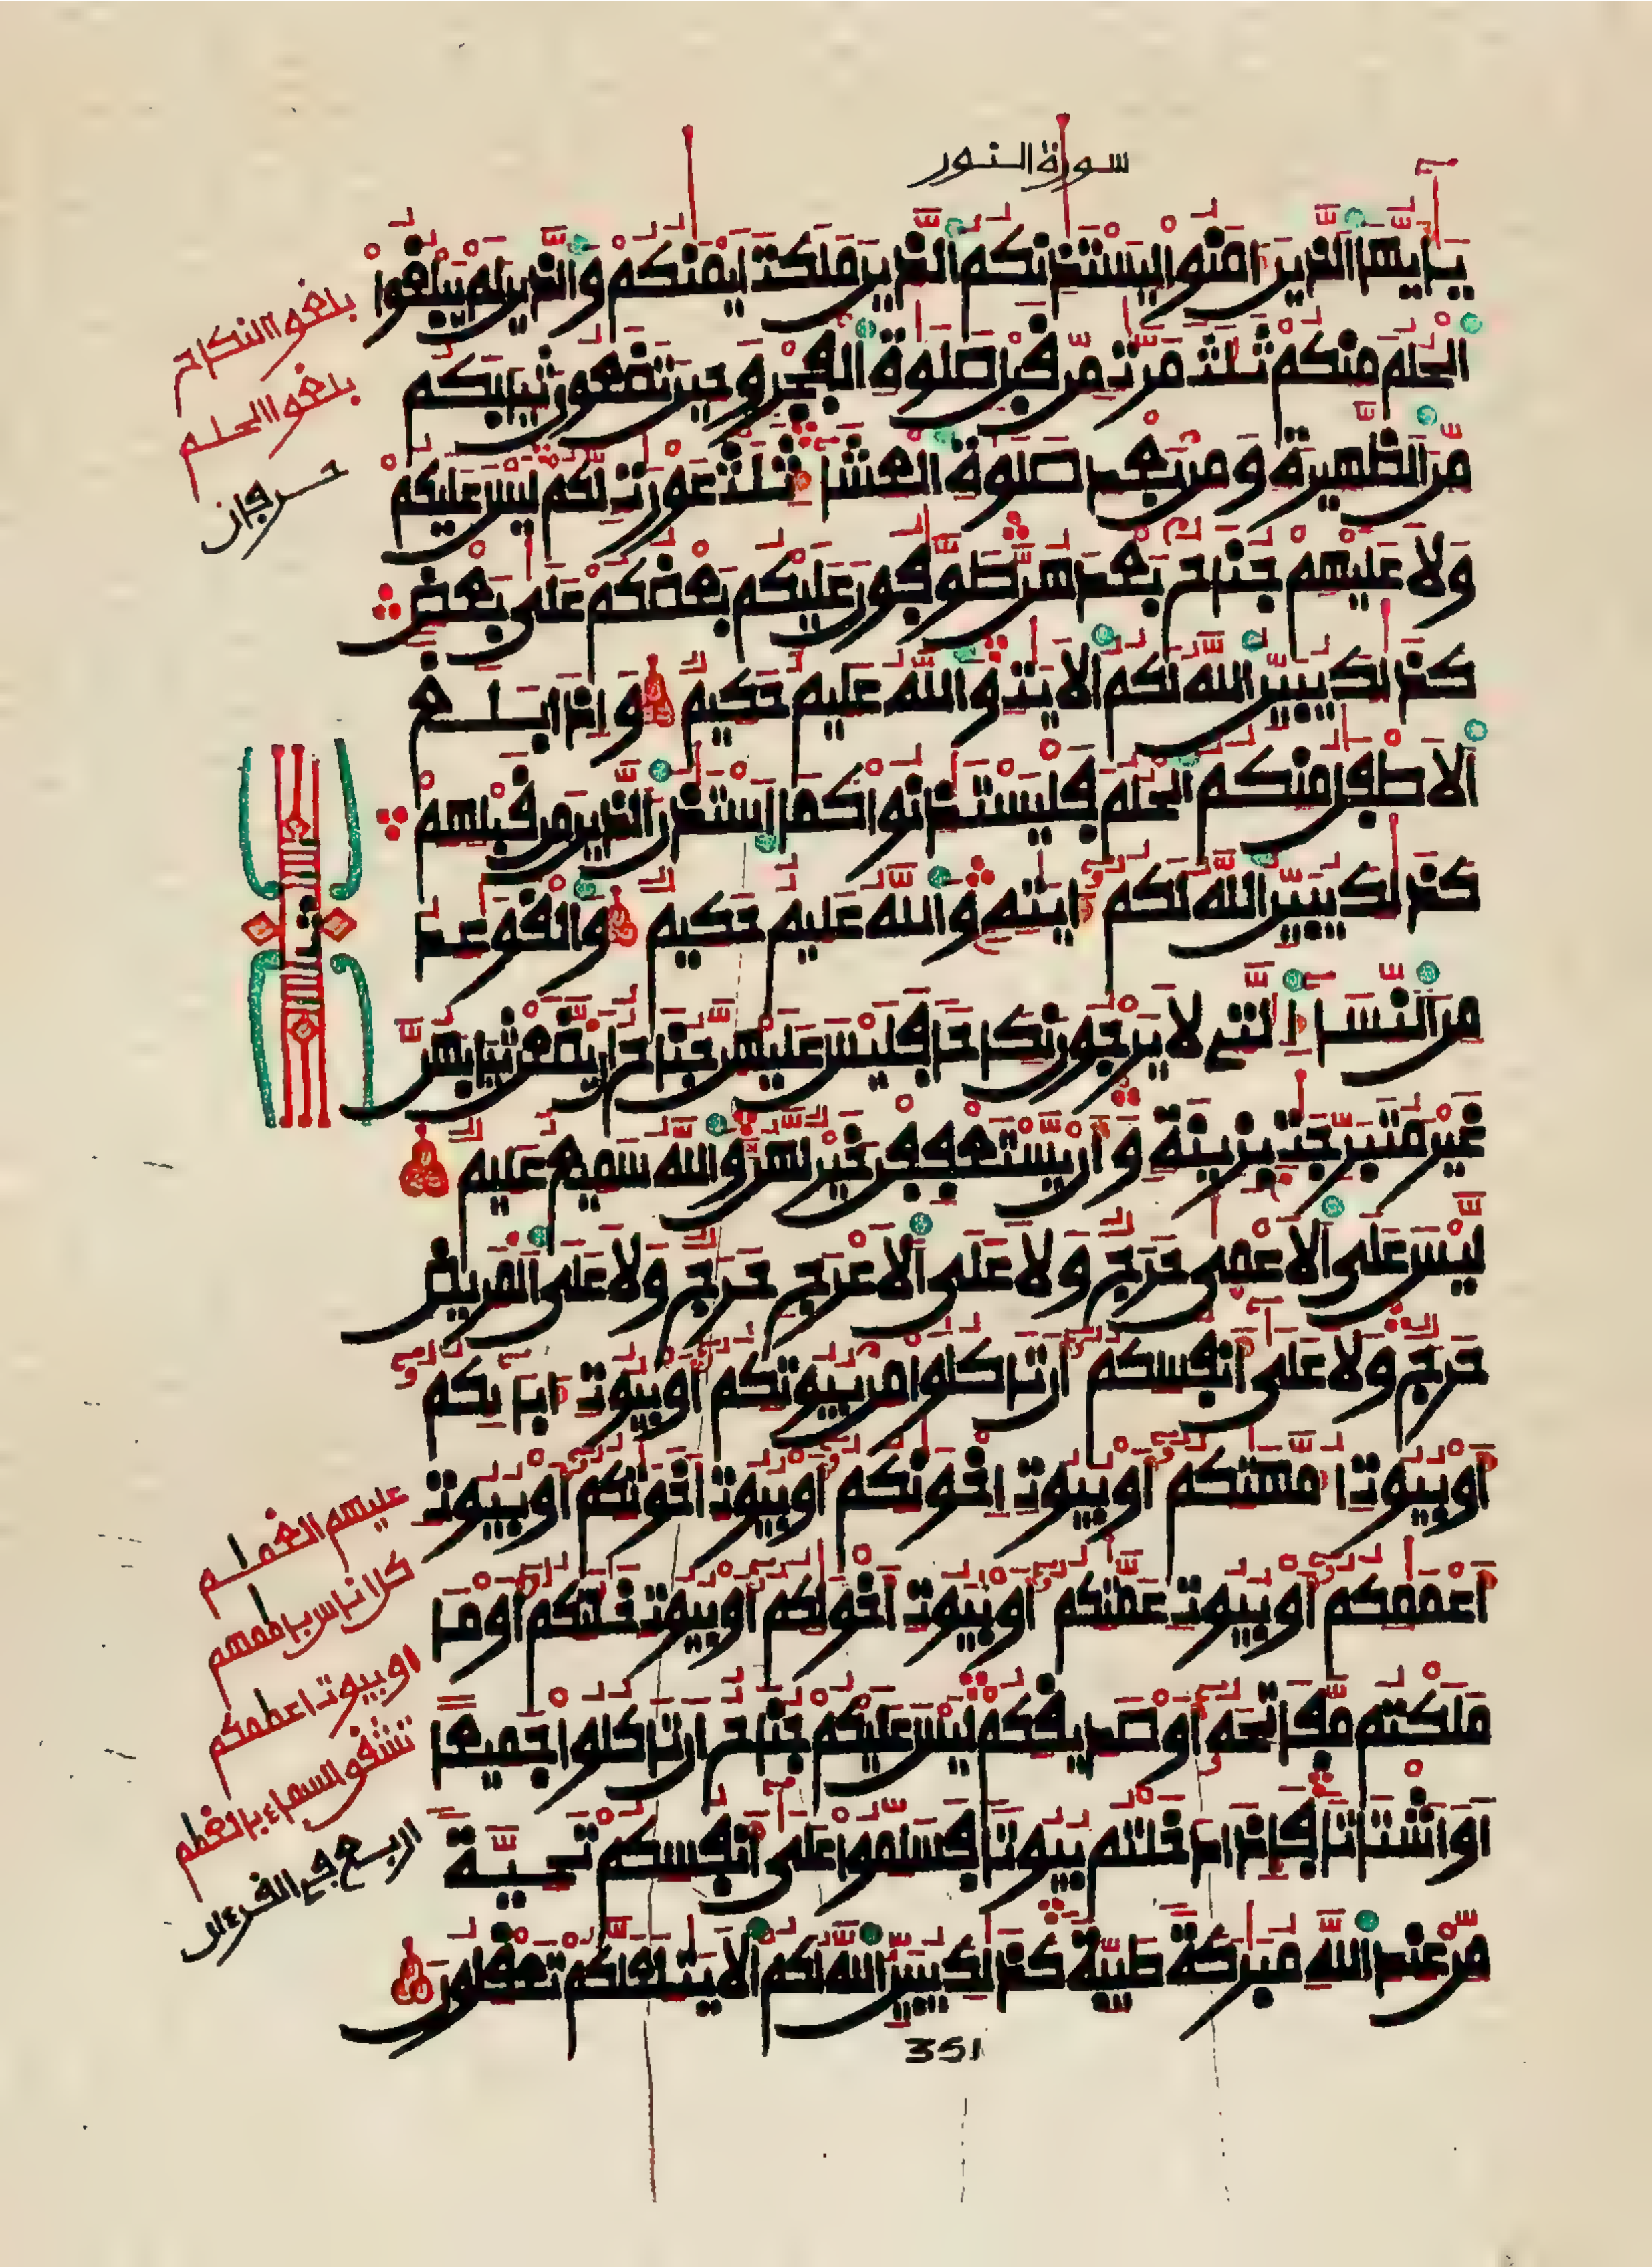 سورة النور
يأيها الذين ءامنوا ليستذنكم الذين ملكت أيمنكم والذين لم يبلغوا
الحلم منكم ثلث مرت من قبل صلوة الفجر وحين تضعون ثيابكم
من الظهيرة ومن بعد صلوة العشاء ثلث عورت لكم ليس عليكم
ولا عليهم جناح بعدهن طوفون عليكم بعضكم على بعض
كذلك يبين الله لكم الأيت والله عليم حكيم وإذا بلغ
الأطفل منكم الحلم فليستذنوا كما استذن الذين من قبلهم
كذلك يبين الله لكم ءايته والله عليم حكيم والقوعد
من النساء التي لا يرجون نكاحا فليس عليهن جناح أن يضعن ثيابهن
غير متبرجت بزينة وأن يستعففن خير لهن والله سميع عليم
ليس على الأعمى حرج ولا على الأعرج حرج ولا على المريض
حرج ولا على أنفسكم أن تاكلوا من بيوتكم أو بيوت ءابايكم
أو بيوت أمهتكم أو بيوت إخونكم أو بيوت أخوتكم أو بيوت
أعممكم أو بيوت عمتكم أو بيوت أخولكم أو بيوت خلتكم أو ما
ملكتم مفاتحه أو صديقكم ليس عليكم جناح أن تاكلوا جميعا
أو أشتاتا فإذا دخلتم بيوتا فسلموا على أنفسكم تحية
من عند الله مبركة طيبة كذلك يبين الله لكم الأيت لعلكم تعقلون
351
بلغوا النكاح
بلغوا الحلم
حرفان
ثمن
عليهم الغمام
كل اناس بامامهم
او بيوت اعممكم
تشقق السماء بالغمم
اربع في القرءان